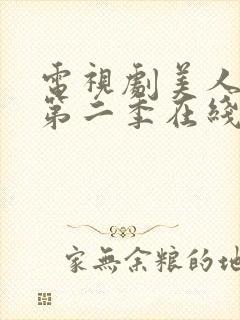 電視劇美人
第二季在綫
家無余粮的地